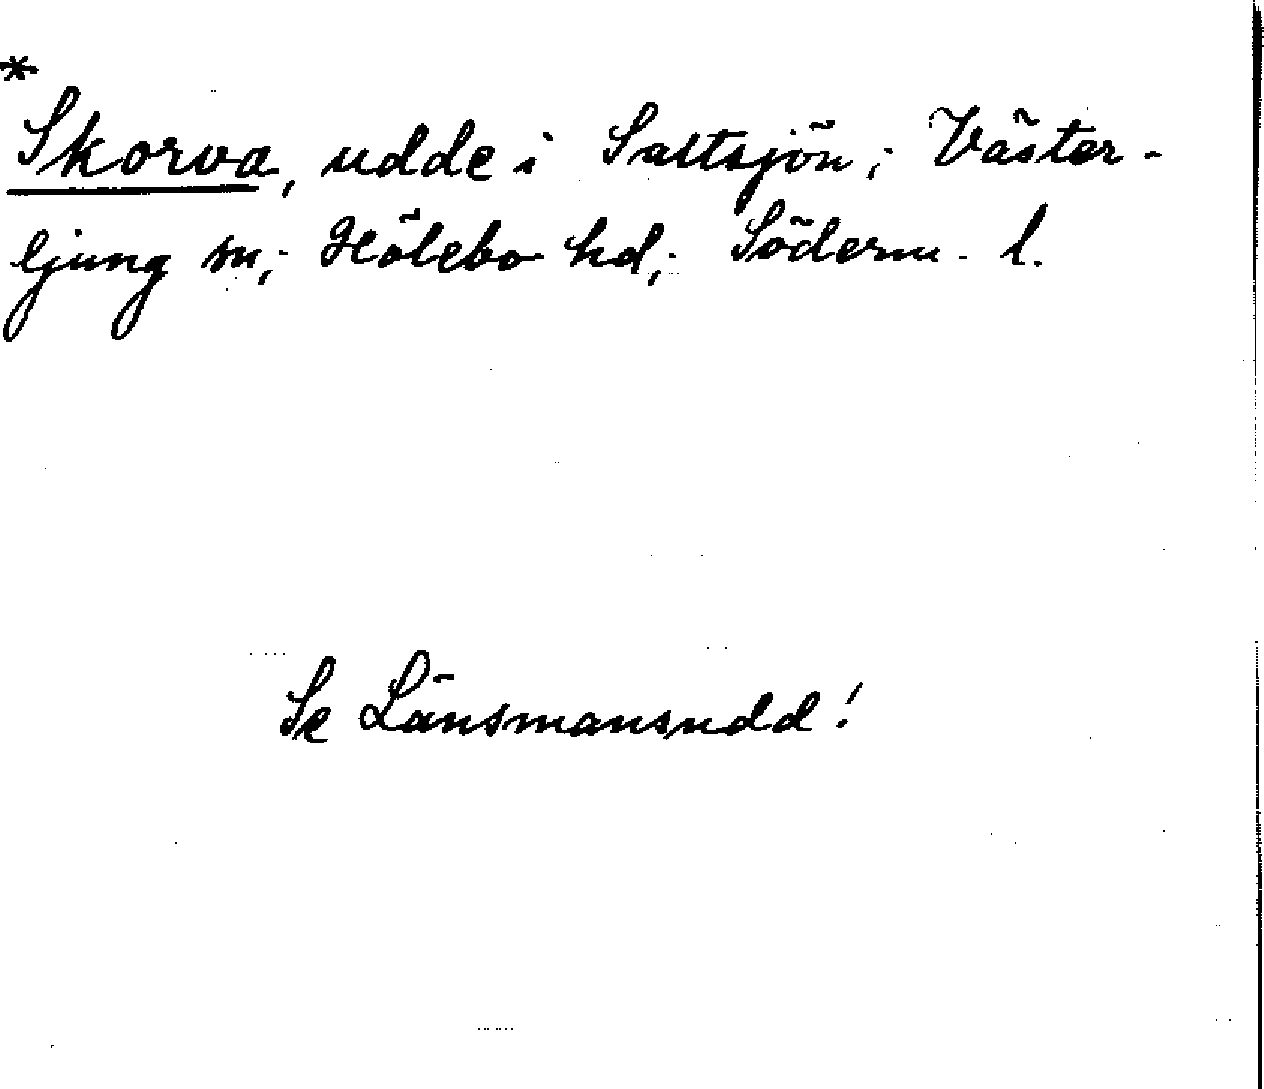 *
Skorva, udde i Saltsjön; Väster-
ljung sn; Hölebo hd; Söderm. l.
Se Länsmansudd!